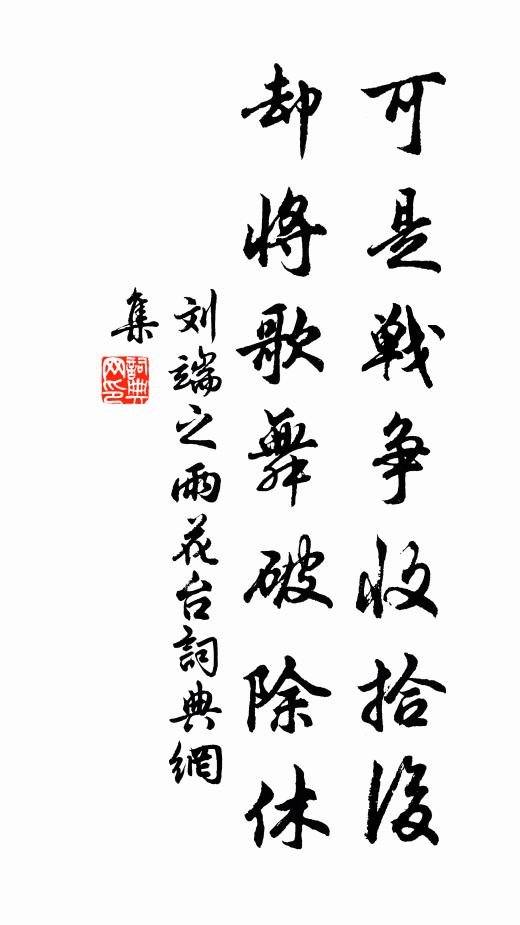 可是戦争收拾後
却將歌舞破除休
刘端之雨花台詞典網
集
詞典網印